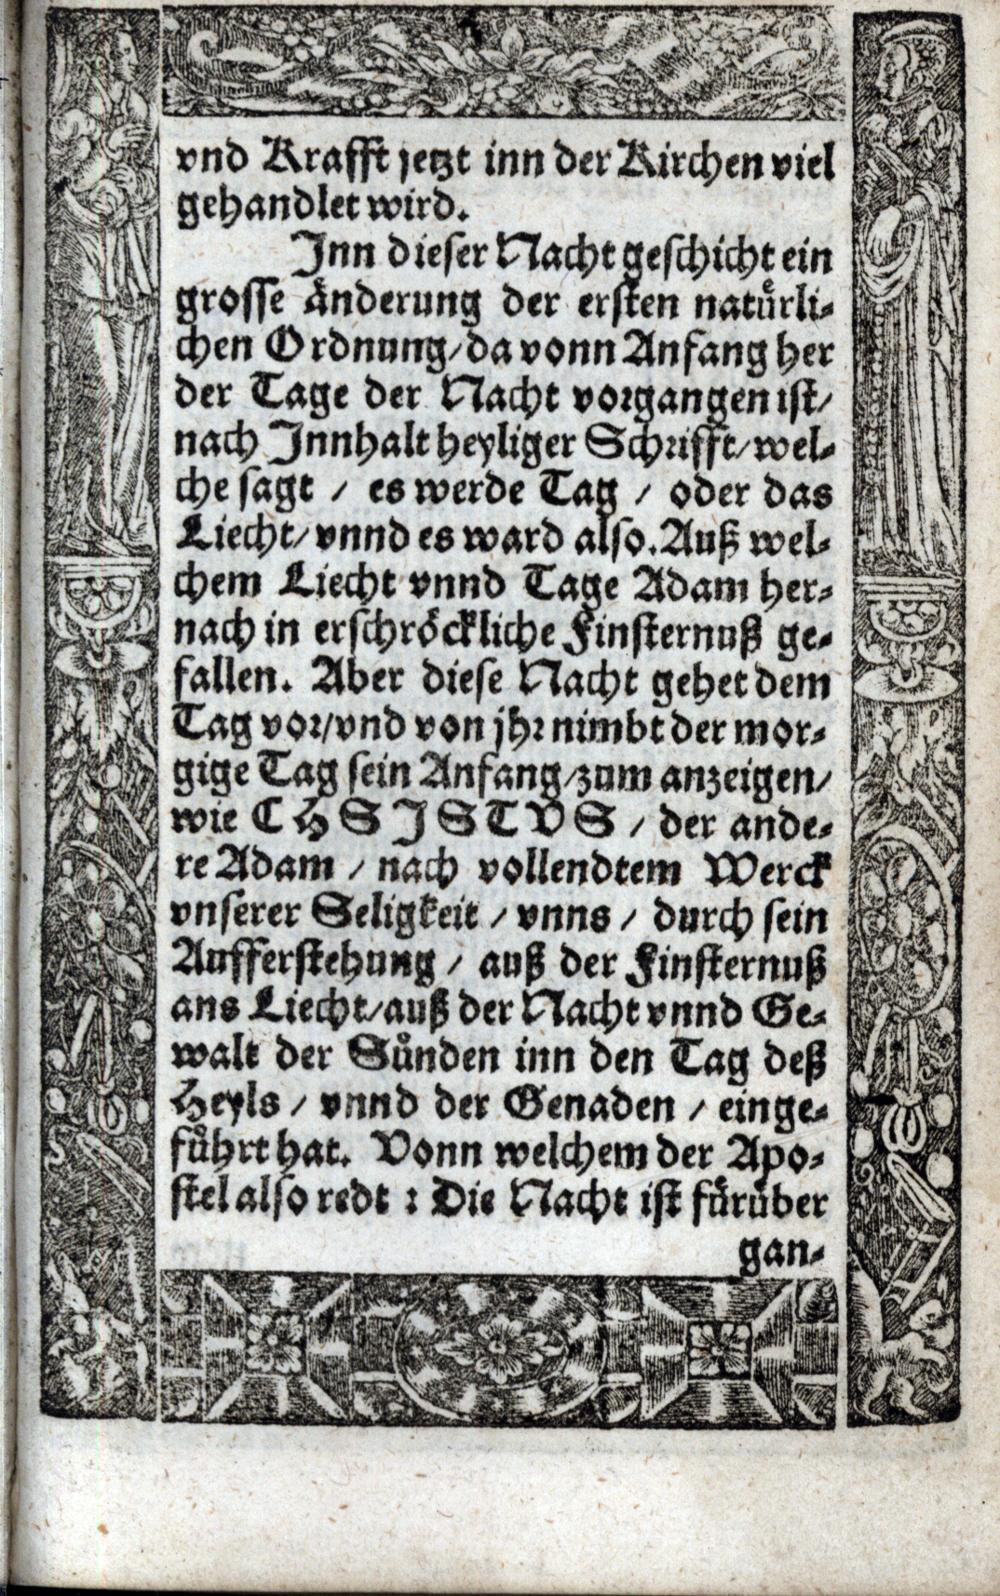 vnd Krafft jetzt inn der Kirchen viel
gehandlet wird.
Inn dieser Nacht geschicht ein
grosse änderung der ersten natürli-
chen Ordnung/ da vonn Anfang her
der Tage der Nacht vorgangen ist/
nach Innhalt heyliger Schrifft/ wel-
che sagt / es werde Tag / oder das
Liecht/ vnnd es ward also. Auß wel-
chem Liecht vnnd Tage Adam her-
nach in erschröckliche Finsternuß ge-
fallen. Aber diese Nacht gehet dem
Tag vor/ vnd von jhr nimbt der mor-
gige Tag sein Anfang/ zum anzeigen/
wie CHSISTVS / der ande-
re Adam / nach vollendtem Werck
vnserer Seligkeit / vnns / durch sein
Aufferstehung / auß der Finsternuß
ans Liecht/ auß der Nacht vnnd Ge-
walt der Sünden inn den Tag deß
Heyls / vnnd der Genaden / einge-
führt hat. Vonn welchem der Apo-
stel also redt : Die Nacht ist fürüber
gan-